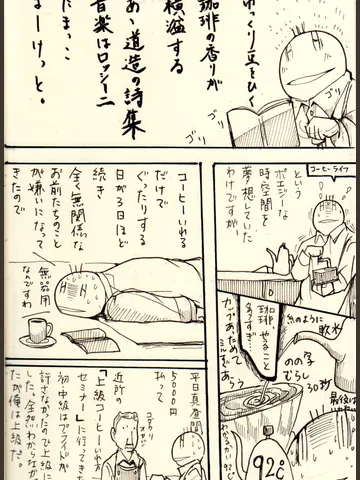 ゆっくり豆をひく
珈琲の香りが
横溢する
あゝ道造の詩集
音楽はロッシーニ
たまっこ
まーけっと。
ゴリ
ゴリ
ゴリ
コーヒーライフ
という
ポエジーな
時空間を
夢想していた
わけですが
糸のように
軟水
のの字
むらし
30秒
最後は
珈琲、やること
多すぎ…
カップあたためて
ミル払
あらう
92℃
コーヒーいれる
だけで
ぐったりする
日が3日ほど
続き
全く無関係な
お前たちのこと
が嫌いになって
きたので
無器用
なんですわ
平日真昼間
5000円
払って
近所の
「上級コーヒーいれ方
セミナー」に行てきた
初中級はプライドが
許さなかったので上級に
した。全然わからなかっ
たが俺は上級だ。
コダワリ
オヤジ